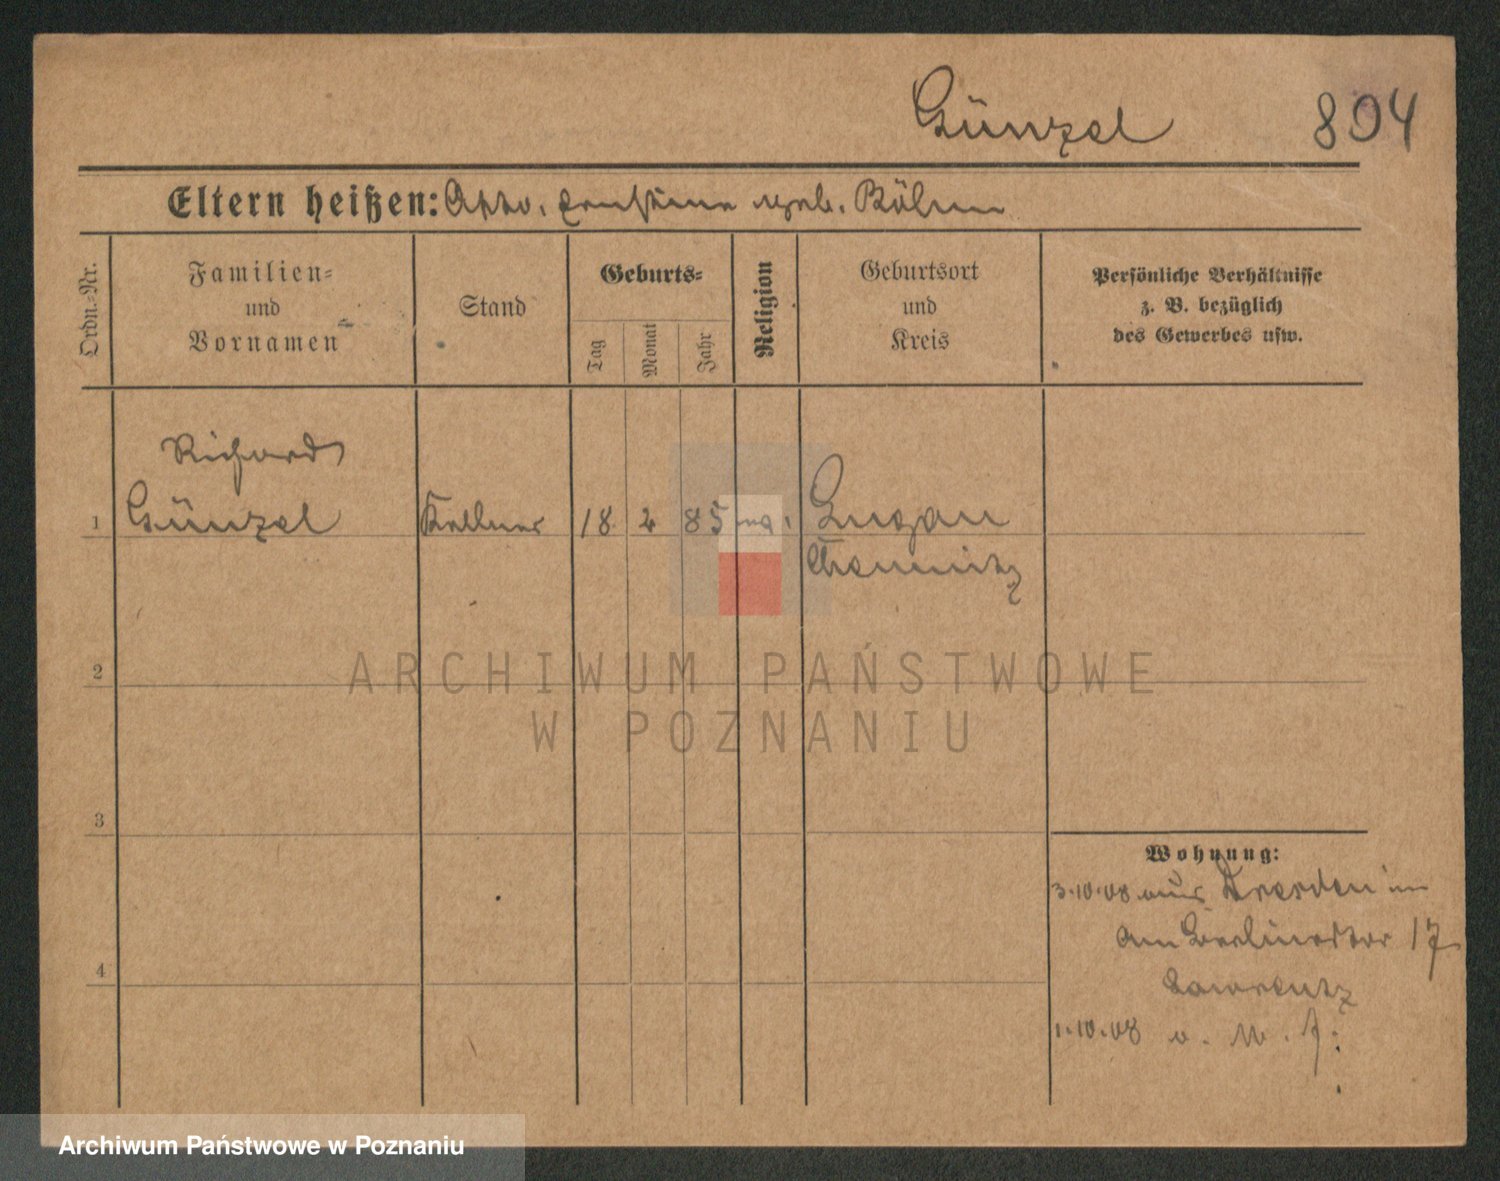 Günzel 894
Eltern heißen: Otto, Ernstine geb. Böhm
Ordn.-Nr.
Familien-
und
Vornamen
Stand
Geburts-
Tag
Monat
Jahr
Religion
Geburtsort
und
Kreis
Persönliche Verhältnisse
z. B. bezüglich
des Gewerbes usw.
Richard
1 Günzel Kellner 18 2 85 Lugau
Chemnitz
2
3
4
Wohnung:
3.10.08 aus Dresden
Am Berlinertor 17
Lawrentz
1.10.08
ARCHIWUM PAŃSTWOWE
W POZNANIU
Archiwum Państwowe w Poznaniu